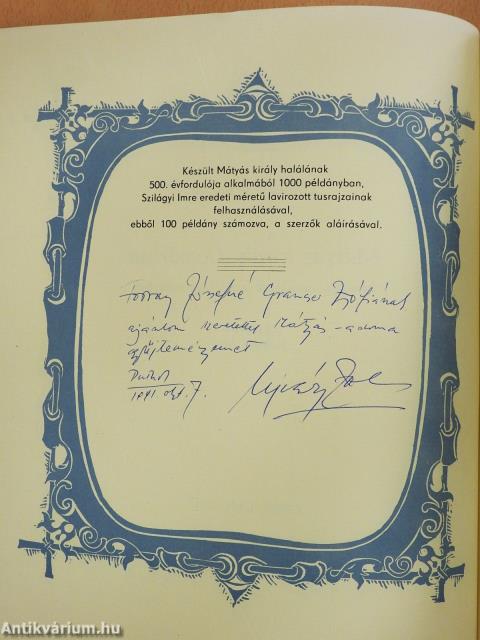 Készült Mátyás király halálának
500. évfordulója alkalmából 1000 példányban,
Szilágyi Imre eredeti méretű lavírozott tusrajzainak
felhasználásával,
ebből 100 példány számozva, a szerzők aláírásával.
Józsefné Zsófiának
ajánlom szeretettel Mátyás-adoma
gyűjteményemet
1991. okt. 7.
Antikvárium.hu